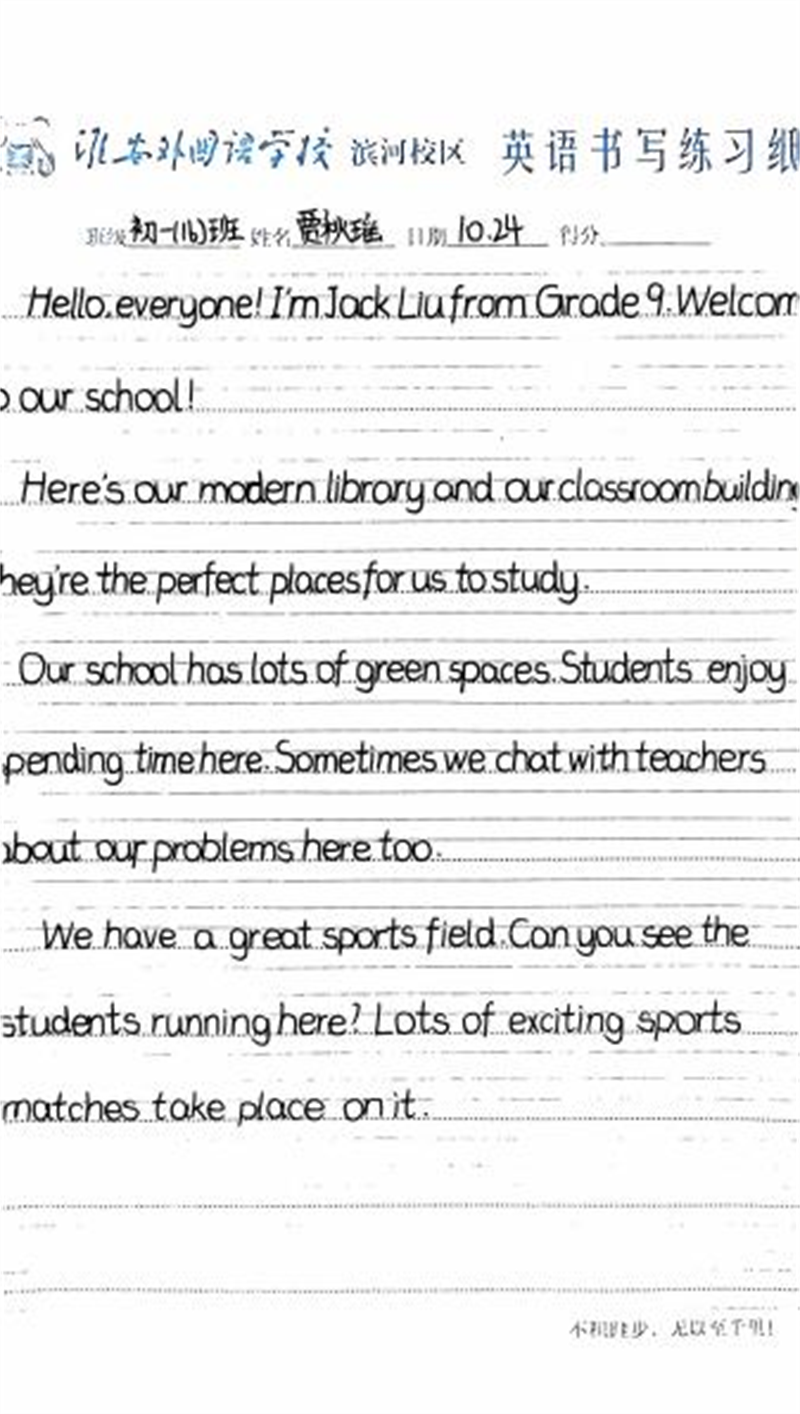 淮安外国语学校 滨河校区 英语书写练习纸
班级 初一(16)班 姓名 贾秋瑶 日期 10.24 得分
Hello, everyone! I'm Jack Liu from Grade 9. Welcom
o our school!
Here's our modern library and our classroom building
hey're the perfect places for us to study.
Our school has lots of green spaces. Students enjoy
pending time here. Sometimes we chat with teachers
about our problems here too.
We have a great sports field. Can you see the
students running here? Lots of exciting sports
matches take place on it.
不积跬步，无以至千里！